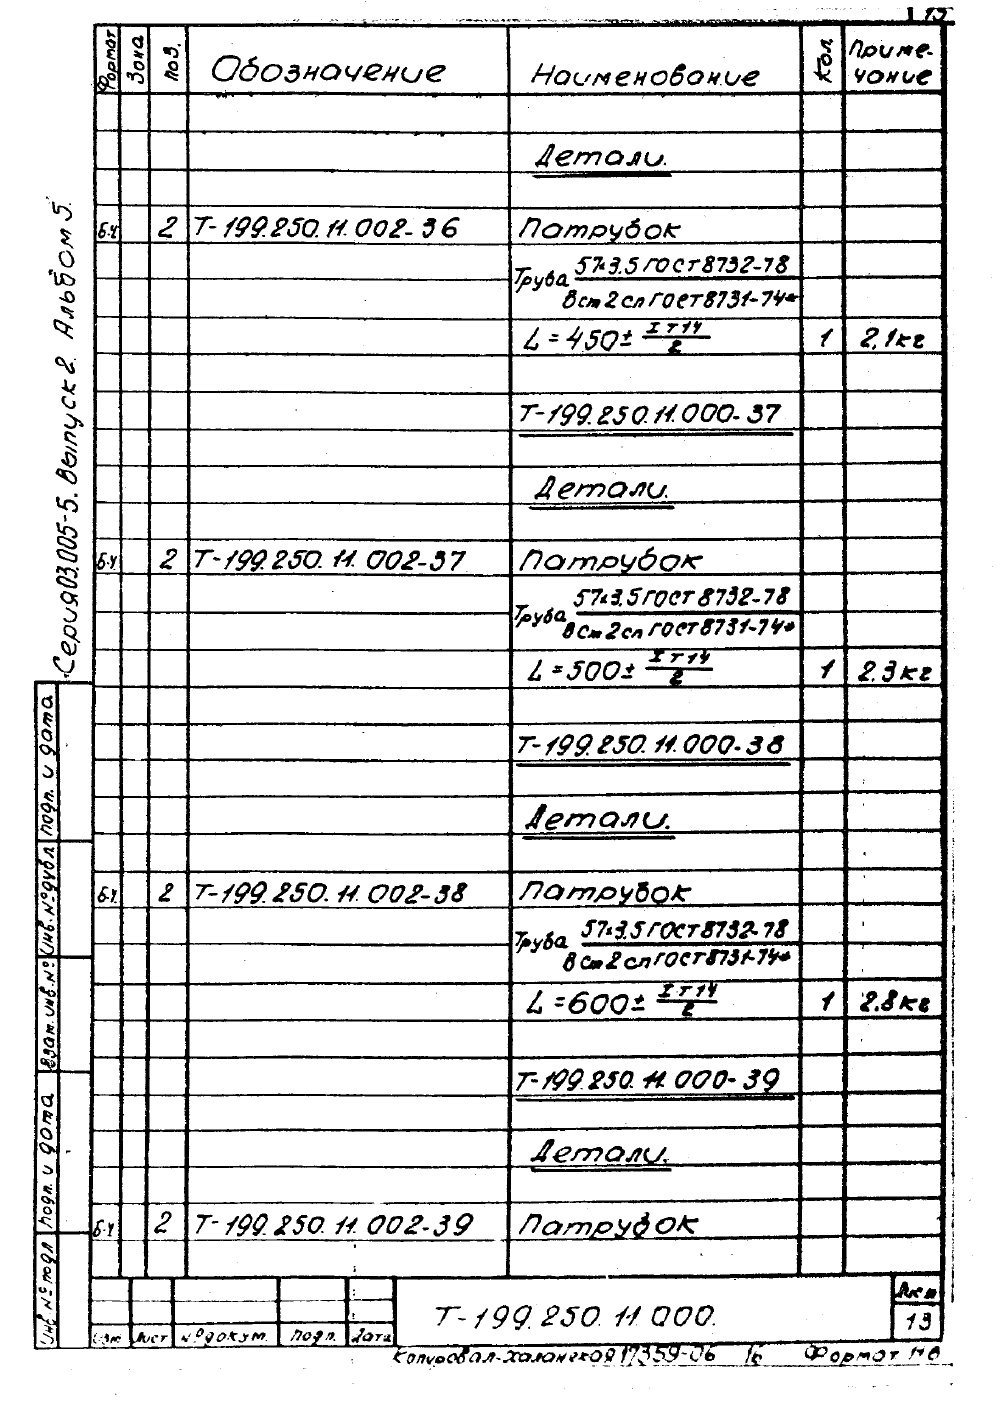 15
Формат Зона Поз. Обозначение Наименование Кол. Приме-
чание
Детали.
Б.Ч 2 Т-199.250.11.002-36 Патрубок
57×3.5 ГОСТ 8732-78
Труба
Вст2сп ГОСТ 8731-74*
L=450± IT14/2 1 2,1кг
Т-199.250.11.000-37
Детали.
Б.Ч 2 Т-199.250.11.002-37 Патрубок
57×3.5 ГОСТ 8732-78
Труба
Вст2сп ГОСТ 8731-74*
L=500± IT14/2 1 2.3кг
Т-199.250.11.000-38
Детали.
Б.Ч. 2 Т-199.250.11.002-38 Патрубок
57×3.5 ГОСТ 8732-78
Труба
Вст2сп ГОСТ 8731-74*
L=600± IT14/2 1 2.8кг
Т-199.250.11.000-39
Детали.
Б.Ч 2 Т-199.250.11.002-39 Патрубок
Серия 03.005-5. Выпуск 2. Альбом 5.
Подп. и дата
Инв. № дубл
Взам. инв. №
Подп. и дата
Инв. № подл
Изм Лист № докум. Подп. Дата
Т-199.250.11.000.
Лист
13
Копировал-Халанская 17359-06 16 Формат